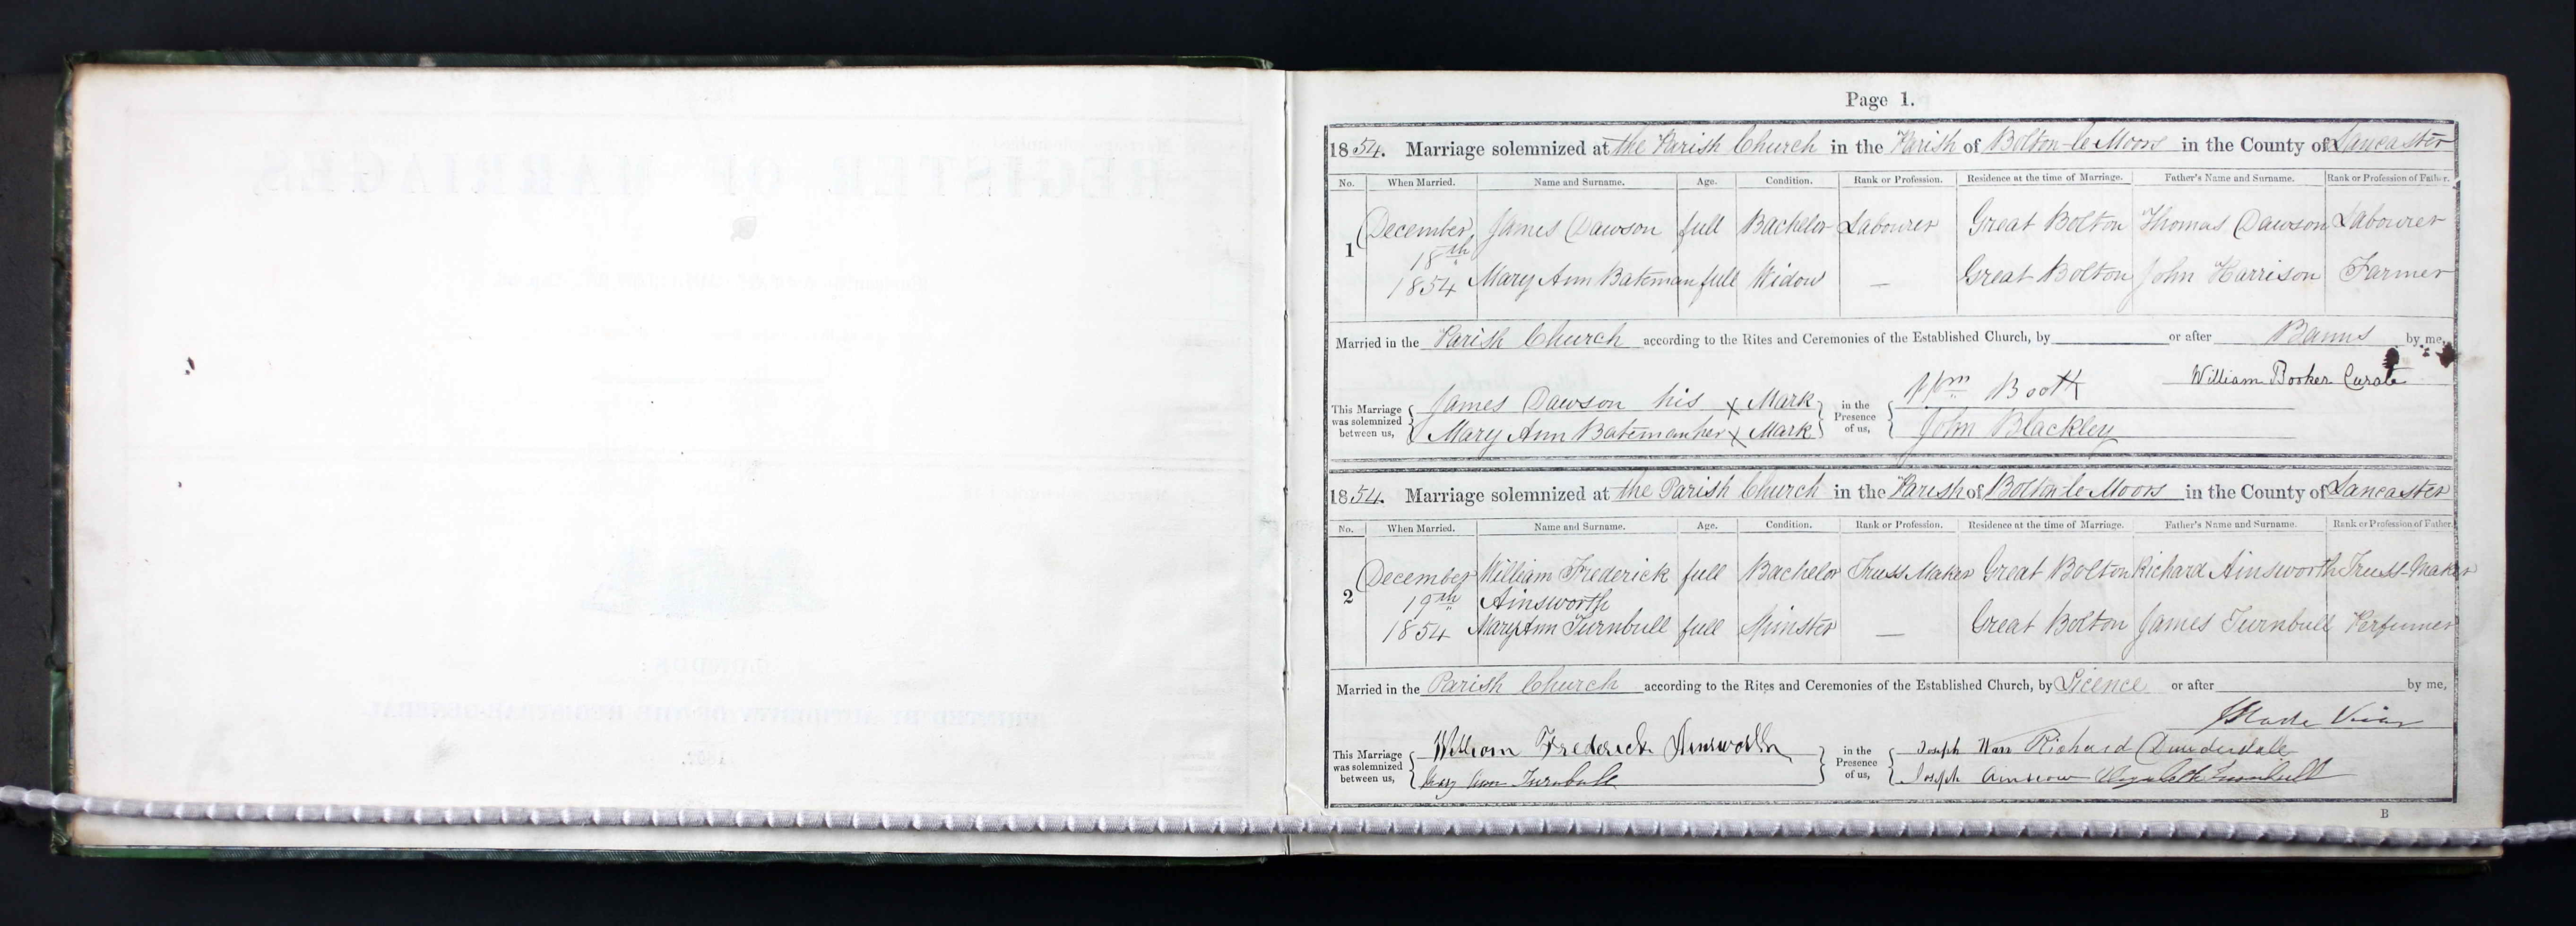 Page 1.
1854. Marriage solemnized at the Parish Church in the Parish of Bolton-le-Moors in the County of Lancaster
No. When Married. Name and Surname. Age. Condition. Rank or Profession. Residence at the time of Marriage. Father's Name and Surname. Rank or Profession of Father.
1 December 18th 1854 James Dawson full Bachelor Labourer Great Bolton Thomas Dawson Labourer
Mary Ann Bateman full Widow — Great Bolton John Harrison Farmer
Married in the Parish Church according to the Rites and Ceremonies of the Established Church, by or after Banns by me,
William Booker Curate
This Marriage was solemnized between us, James Dawson his x Mark in the Presence of us, Wm Booth
Mary Ann Bateman her x Mark John Blackley
1854. Marriage solemnized at the Parish Church in the Parish of Bolton-le-Moors in the County of Lancaster
No. When Married. Name and Surname. Age. Condition. Rank or Profession. Residence at the time of Marriage. Father's Name and Surname. Rank or Profession of Father.
2 December 19th 1854 William Frederick Ainsworth full Bachelor Truss Maker Great Bolton Richard Ainsworth Truss-Maker
Mary Ann Turnbull full Spinster — Great Bolton James Turnbull Perfumer
Married in the Parish Church according to the Rites and Ceremonies of the Established Church, by Licence or after by me,
Vicar
This Marriage was solemnized between us, William Frederick Ainsworth in the Presence of us, Joseph Richard Dunderdale
Mary Ann Turnbull Joseph Elizabeth Turnbull
B